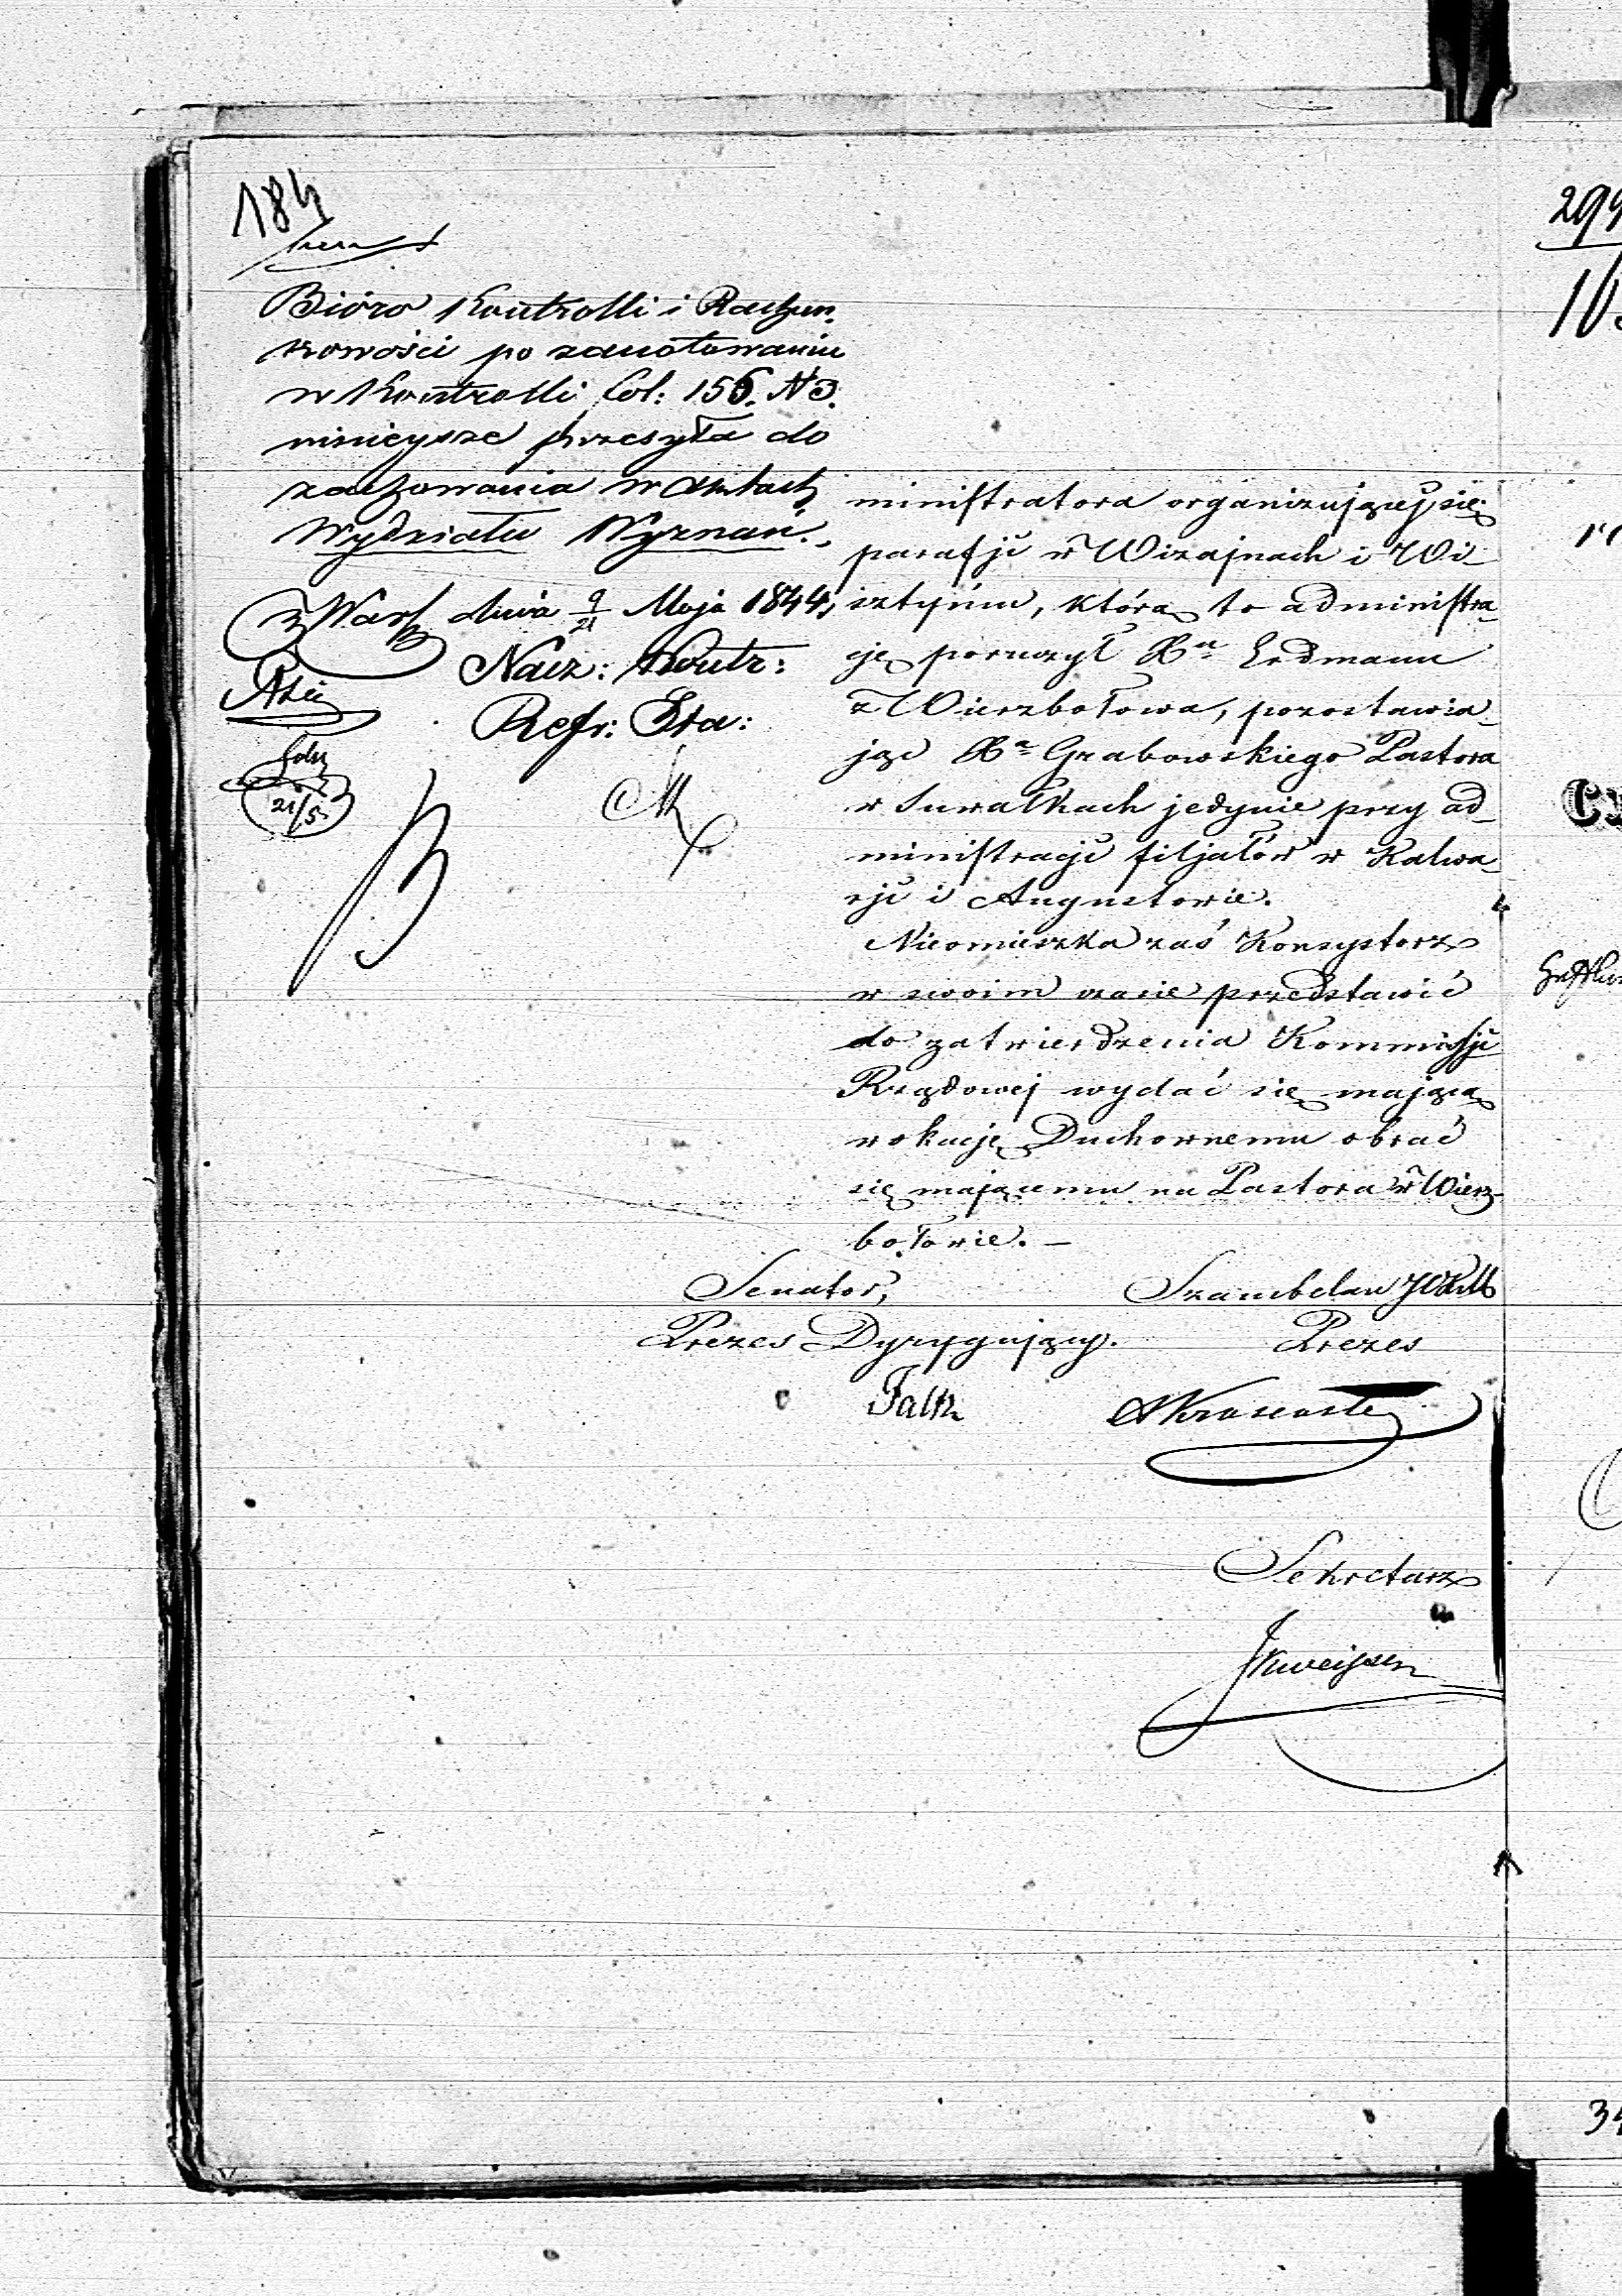 184
Bióro Kontrolli i Rachun.
kowości po zanotowaniu
w Kontrolli Col: 156. N 3.
ninieysze przesyła do
zachowania w Aktach
Wydziału Wyznań.
z Warsz dnia 9/21 Maja 1844
Nacz: Kontr:
Refr: Sta:
21/5
ministratora organizującej się
parafji w Wizajnach i Wi-
sztyńcu, którą to administra-
cję poruczył Xu Erdmann
z Wierzbołowa, pozostawia-
jąc Xa Grabowskiego Pastora
w Suwałkach jedynie przy ad-
ministracji filjałów w Kalwa-
rji i Augustowie.
Nieomieszka zaś Konsystorz
w swoim czasie przedstawić
do zatwierdzenia Kommissji
Rządowej wydać się mającą
wokację Duchownemu obrać
się mającemu na Pastora w Wierz-
bołowie. —
Senator, Szambelan
Prezes Dyrygujący. Prezes
Faltz
Sekretarz
299
34